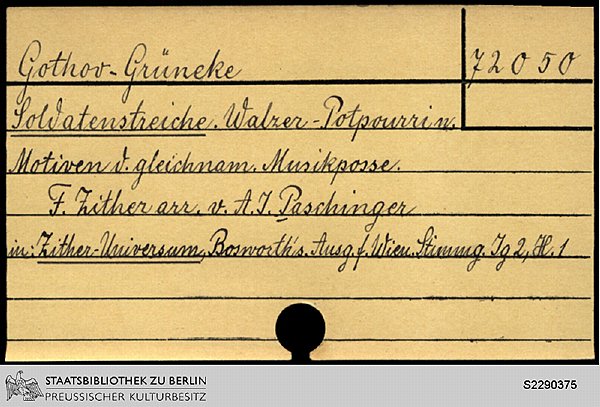 Gothov-Grüneke
72050
Soldatenstreiche. Walzer-Potpourri n.
Motiven d. gleichnam. Musikposse.
F. Zither arr. v. A. J. Paschinger
in: Zither-Universum, Bosworth's. Ausg. f. Wien. Stimmg. Jg 2, H. 1
STAATSBIBLIOTHEK ZU BERLIN
PREUSSISCHER KULTURBESITZ
S2290375